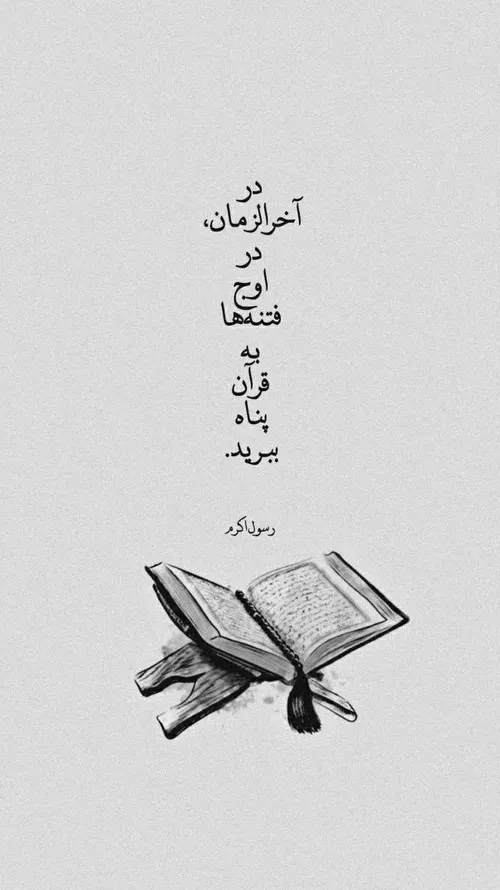 در
آخرالزمان،
در
اوج
فتنه‌ها
به
قرآن
پناه
ببرید.
رسول‌اکرم